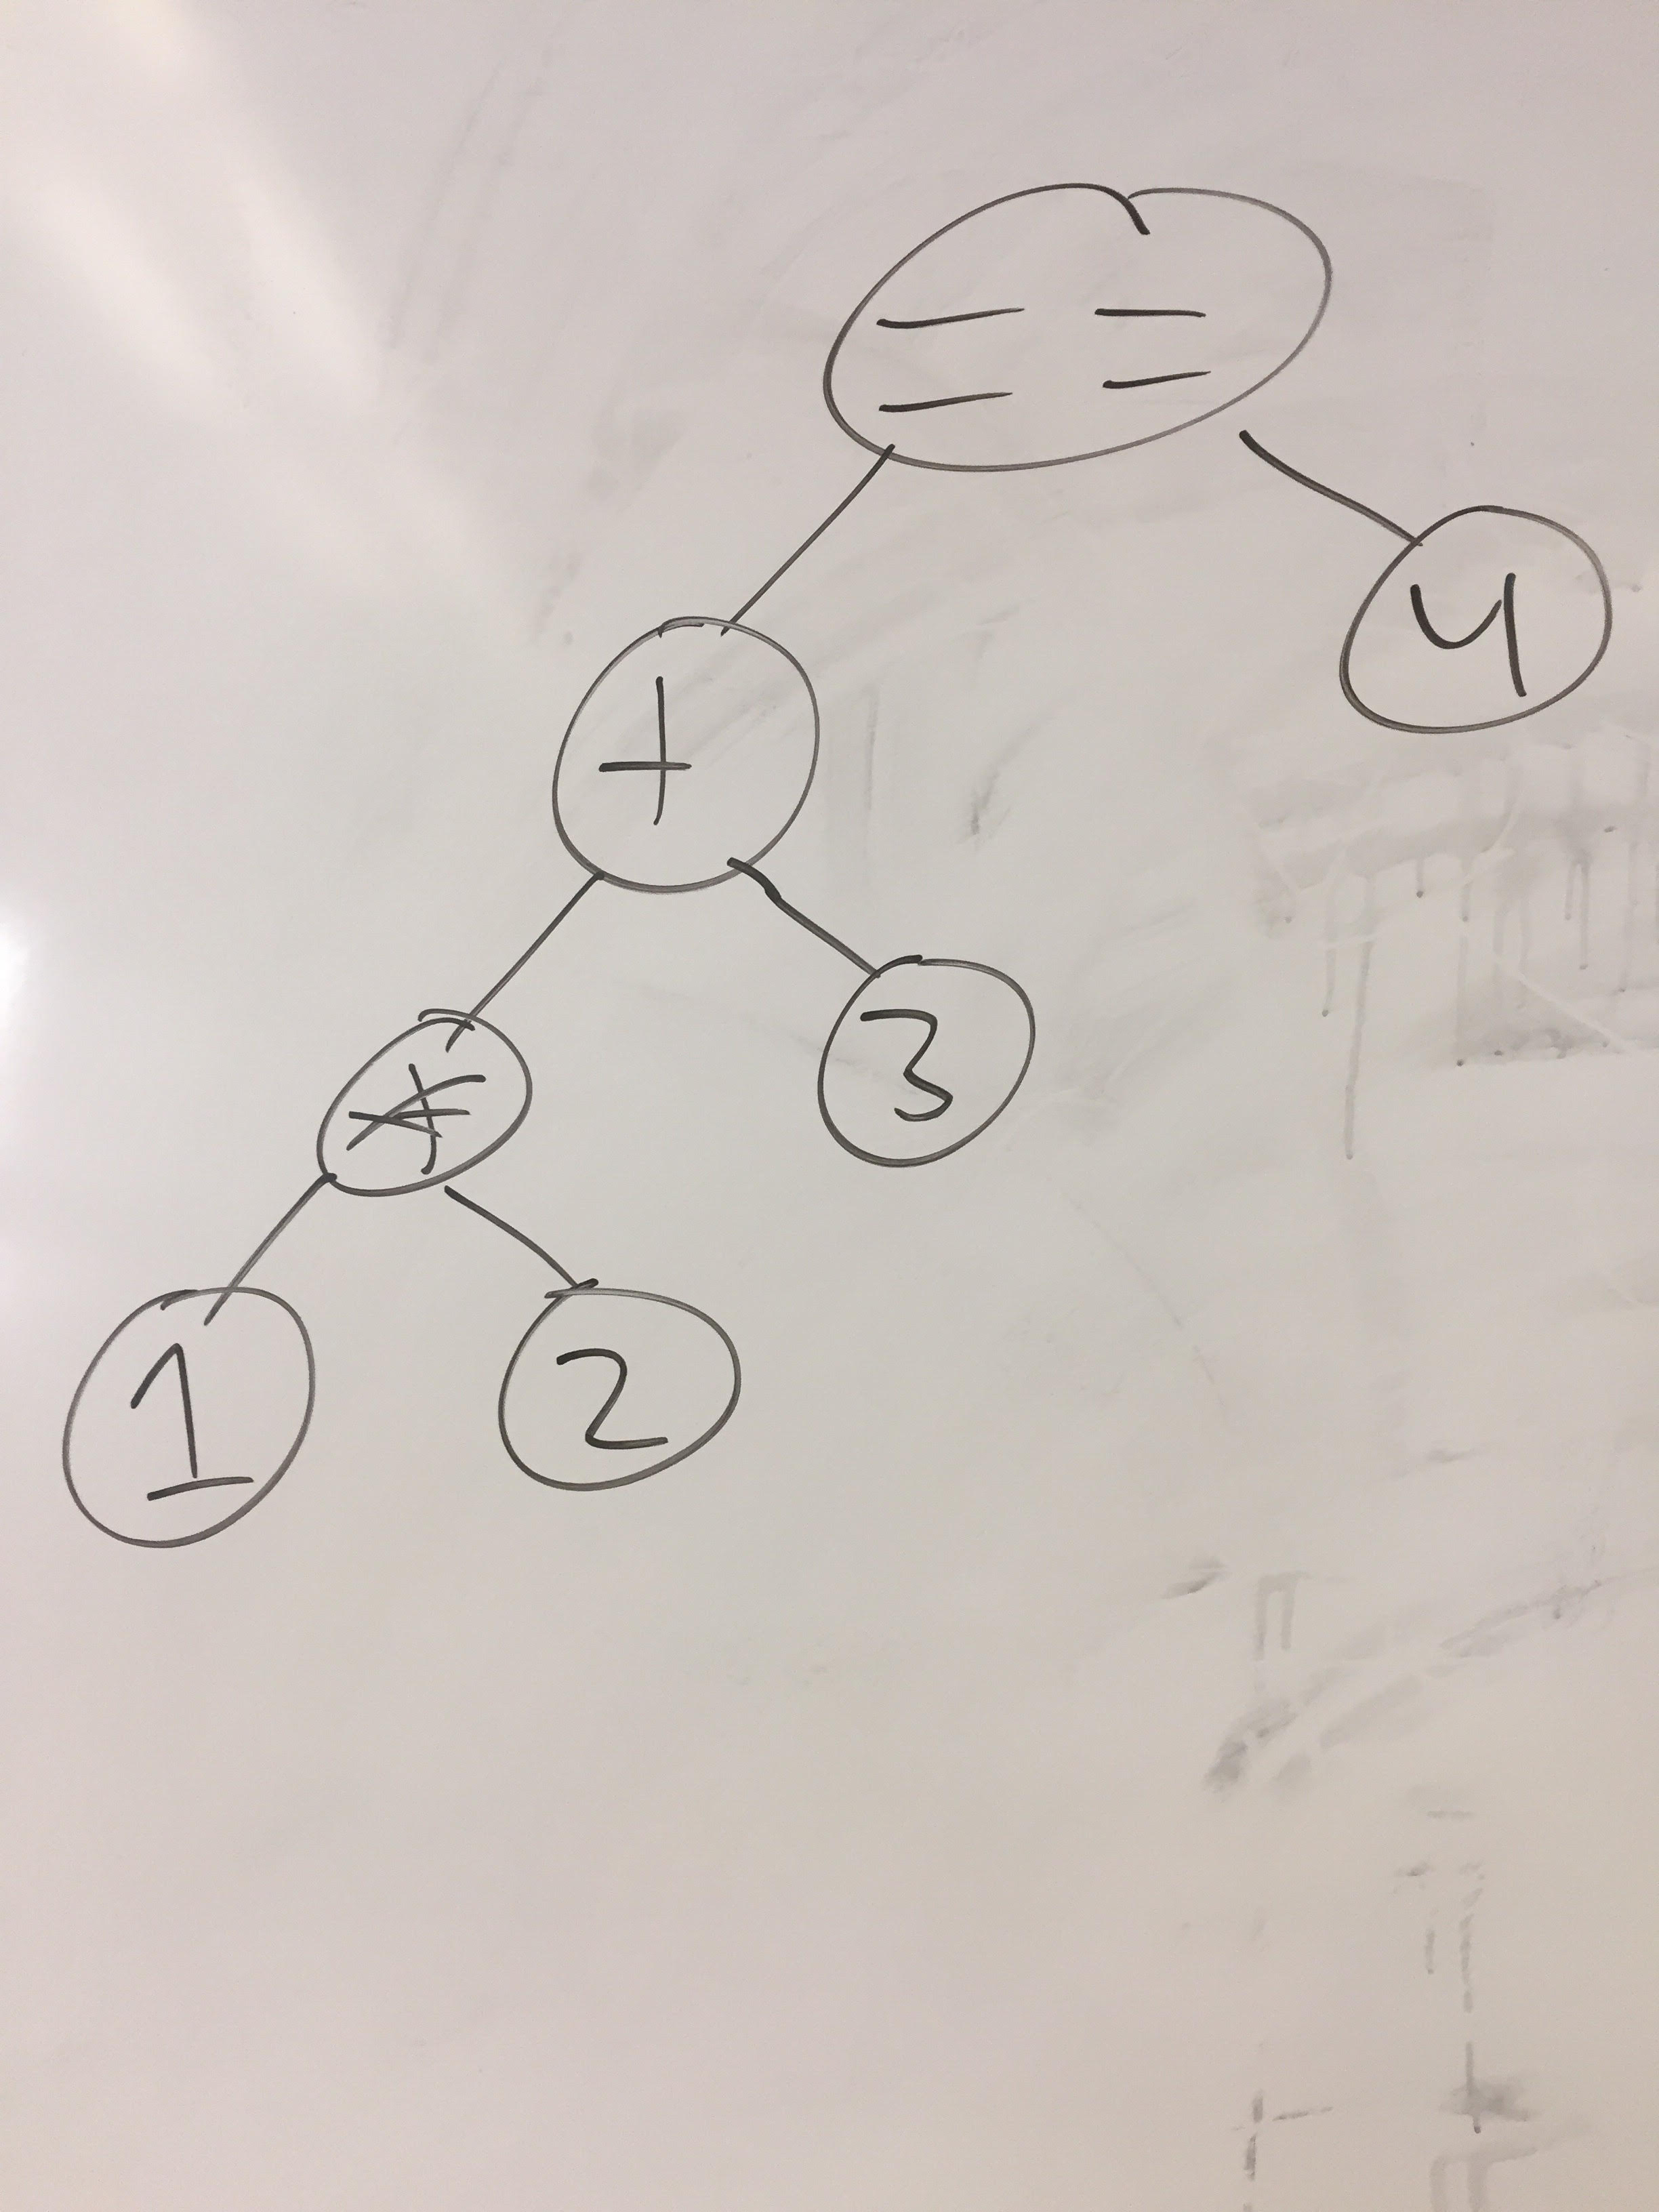 ==
4
+
3
*
1
2